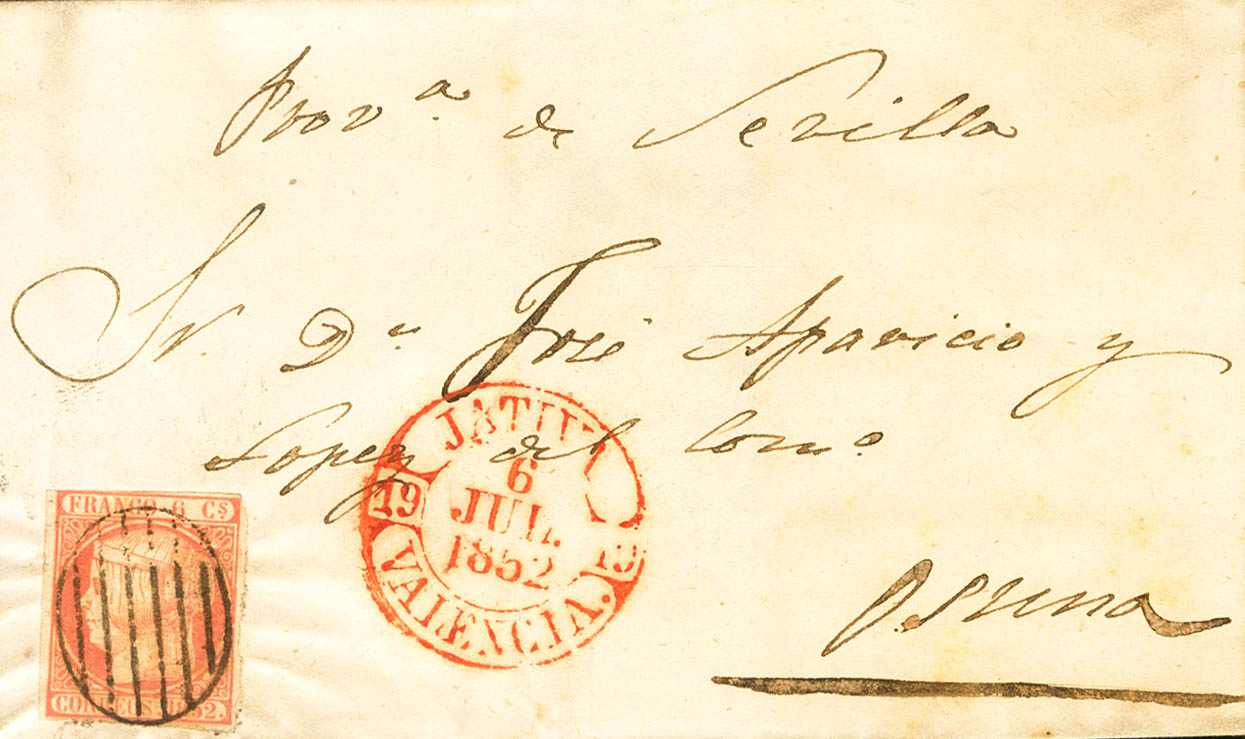 Prov.ª de Sevilla
Sr. D.ⁿ José Aparicio y
Lopez del Com.º
Osuna
JATIVA
6
JUL.
1852
19
VALENCIA.
FRANCO 6 Cs
CORREOS. 1852.